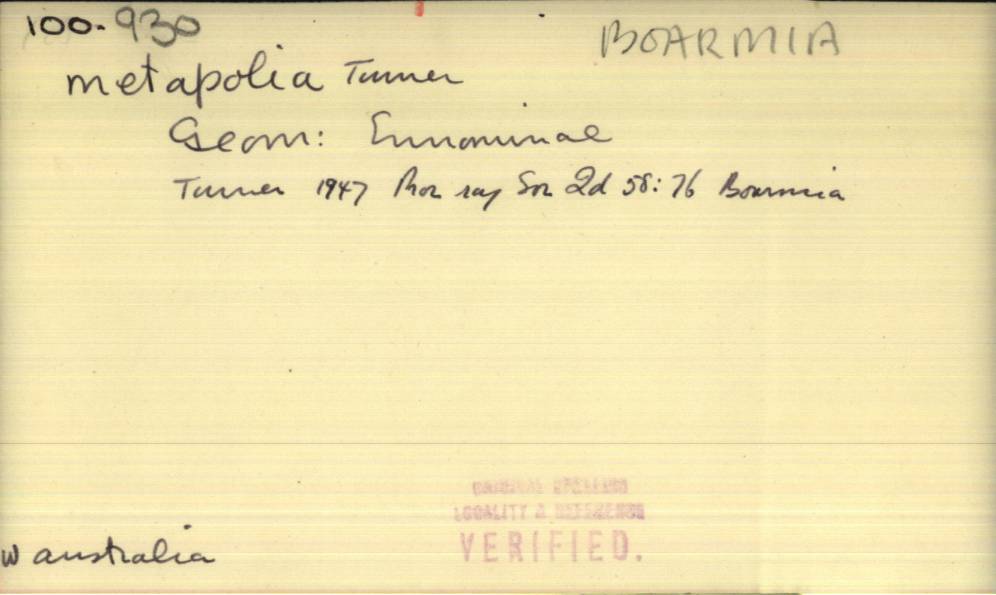 100-930
BOARMIA
metapolia Turner
Geom: Ennominae
Turner 1947 Proc roy Soc Qd 58: 76 Boarmia
ORIGINAL SPELLING
LOCALITY & REFERENCE
VERIFIED.
W australia